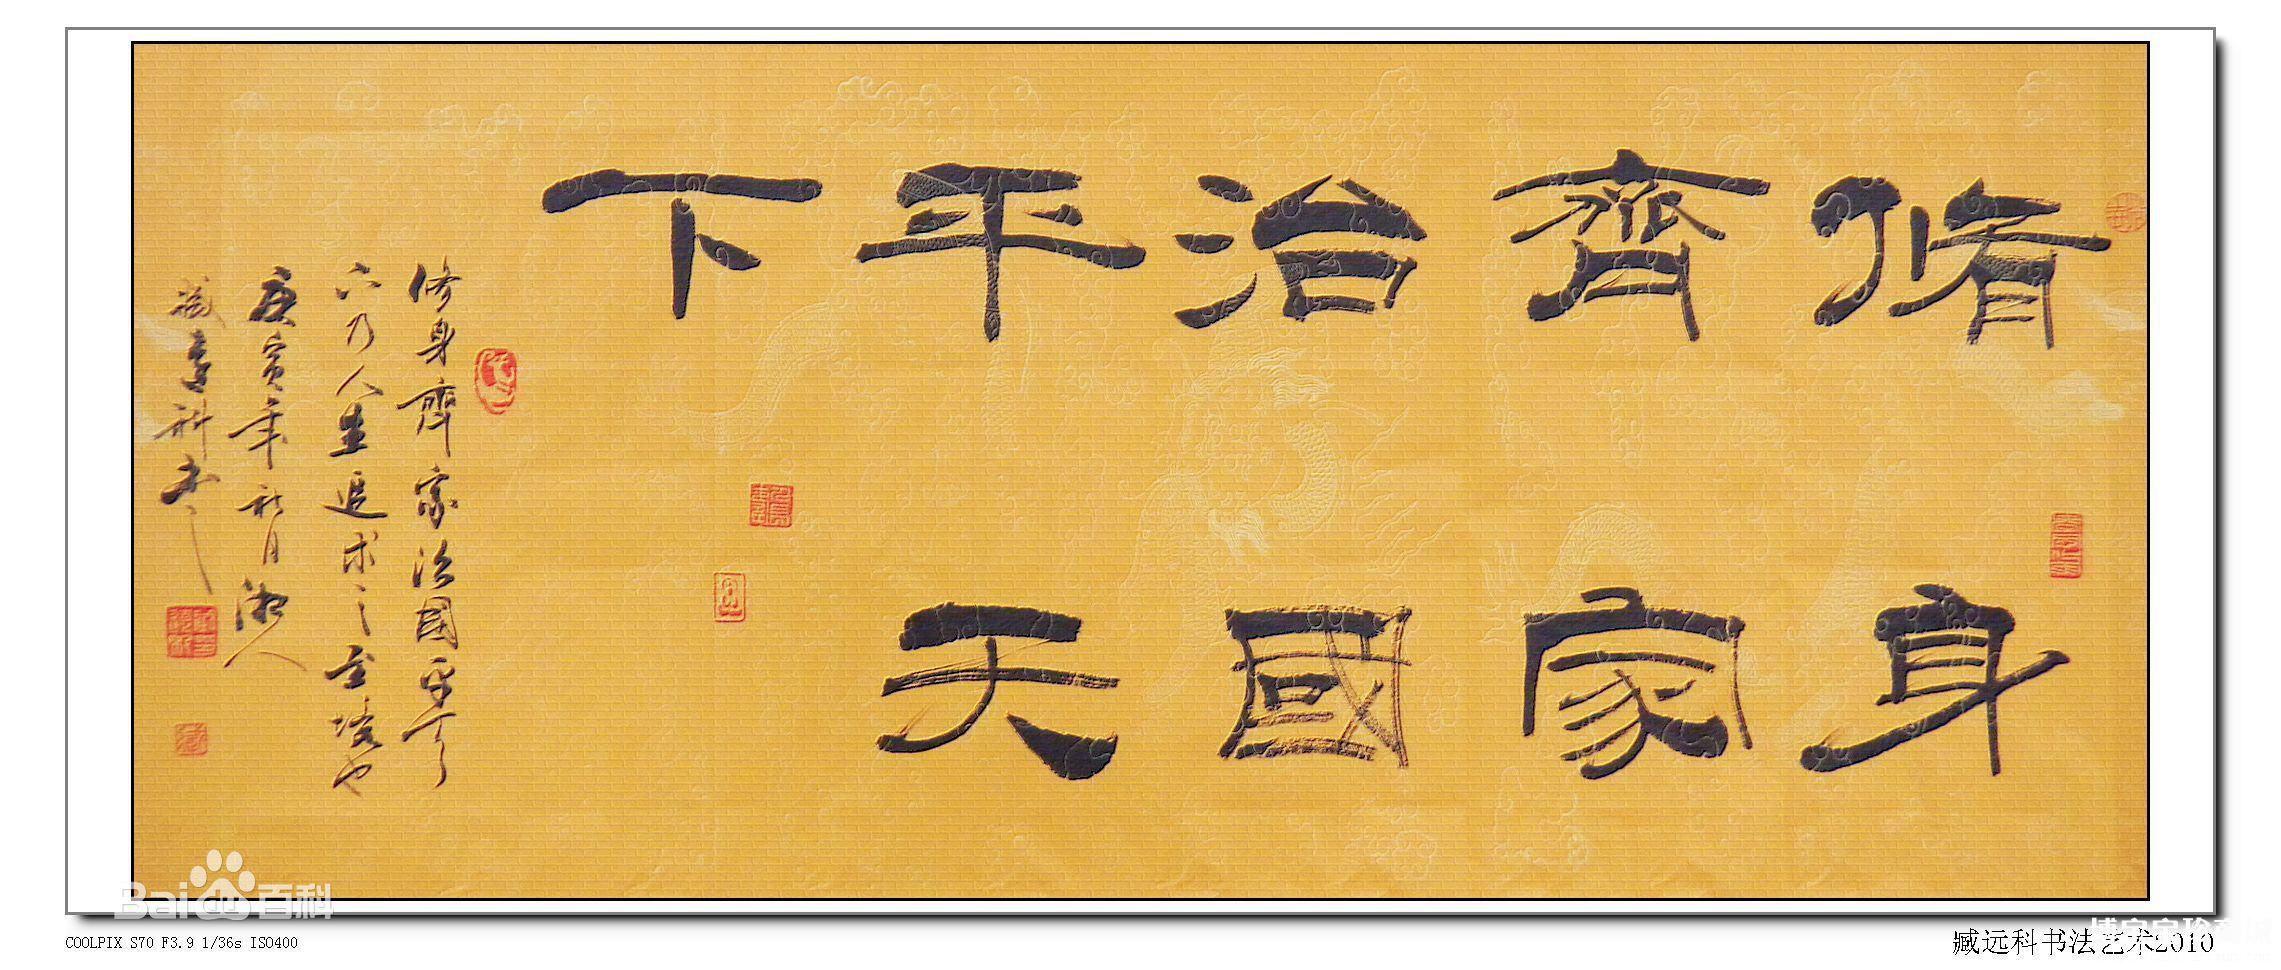 脩身
齊家
治國
平天
下
修身齊家治國平天
下乃人生追求之至境也
庚寅年秋月湘人
臧遠科書
Bai 百科
COOLPIX S70 F3.9 1/36s ISO400
臧远科书法艺术2010